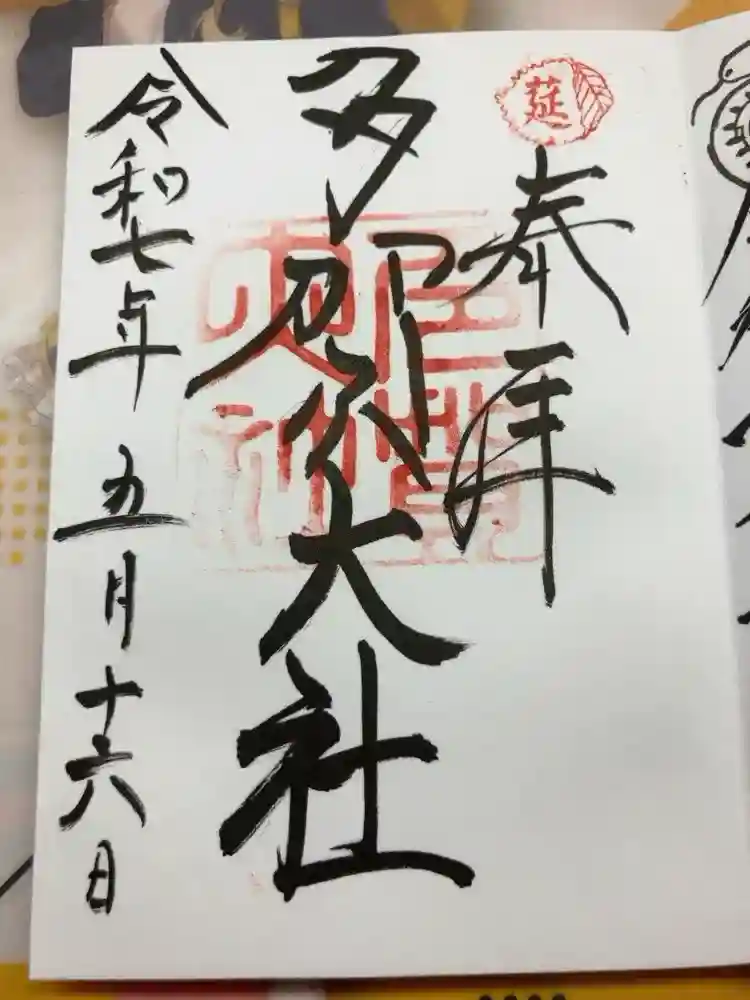 莚
奉拝
多賀大社
令和七年五月十六日